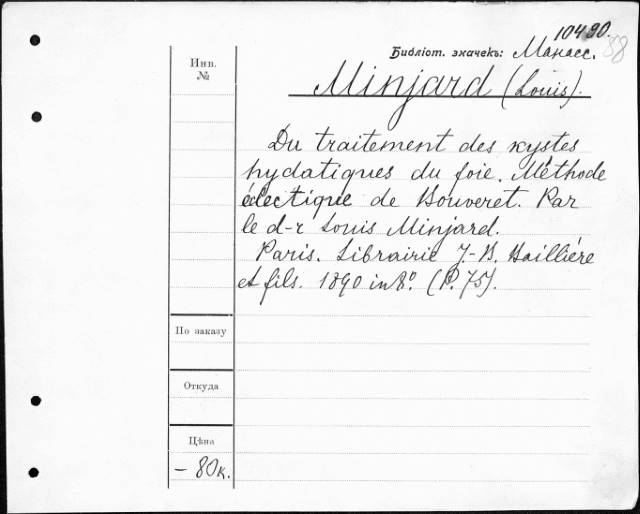 10490.
88
Библіот. значекъ: Манасс.
Инв.
№
Minjard (Louis).
Du traitement des kystes
hydatiques du foie. Méthode
électique de Bouveret. Par
le d-r Louis Minjard.
Paris. Librairie J.-B. Baillière
et fils. 1890 in 8°. (P. 75).
По заказу
Откуда
Цѣна
– 80 к.